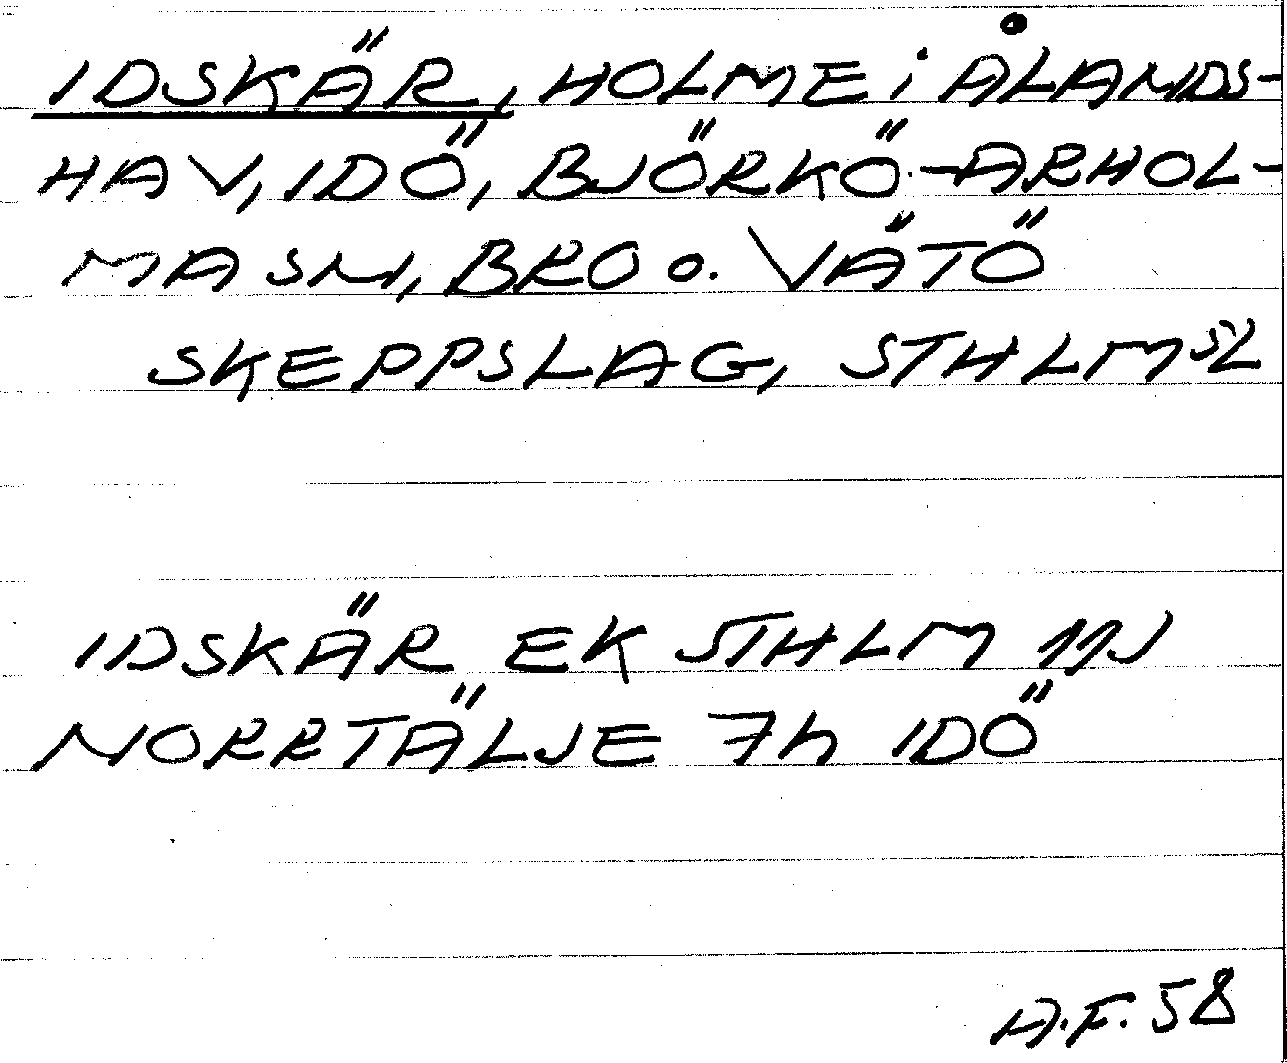 IDSKÄR, HOLME i ÅLANDS-
HAV, IDÖ, BJÖRKÖ-ARHOL-
MA SN, BRO o. VÄTÖ
SKEPPSLAG, STHLMSL
IDSKÄR EK STHLM 11J
NORRTÄLJE 7h IDÖ
A.F. 58